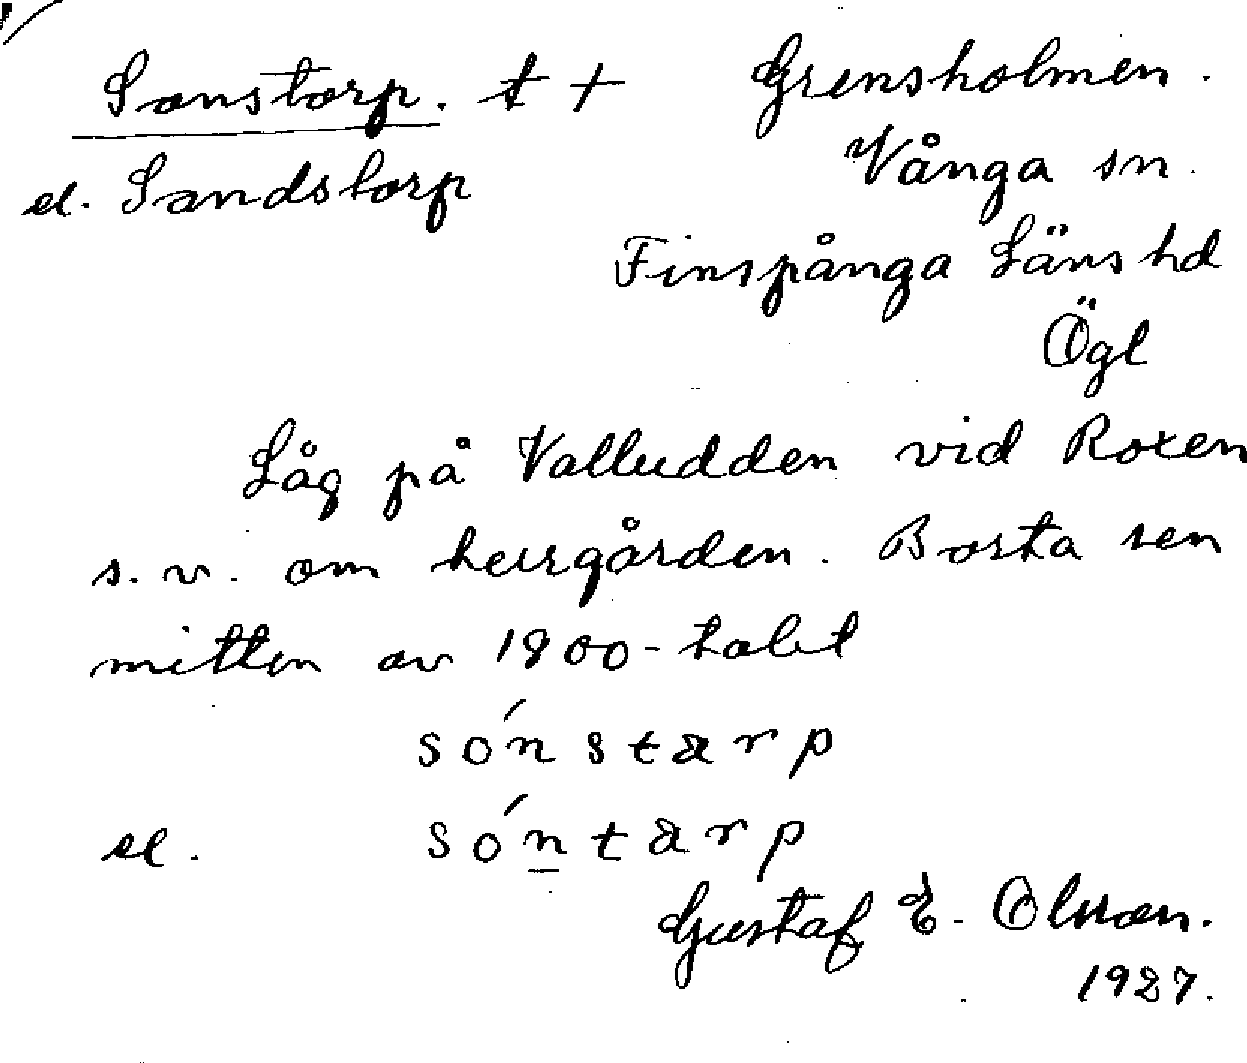 Sanstorp. t + Grensholmen.
el. Sandstorp Vånga sn.
Finspånga Läns hd
Ögl
Låg på Valludden vid Roxen
s.v. om herrgården. Borta sen
mitten av 1800-talet
sónstarp
el. sóntarp
Gustaf E. Olsson.
1927.